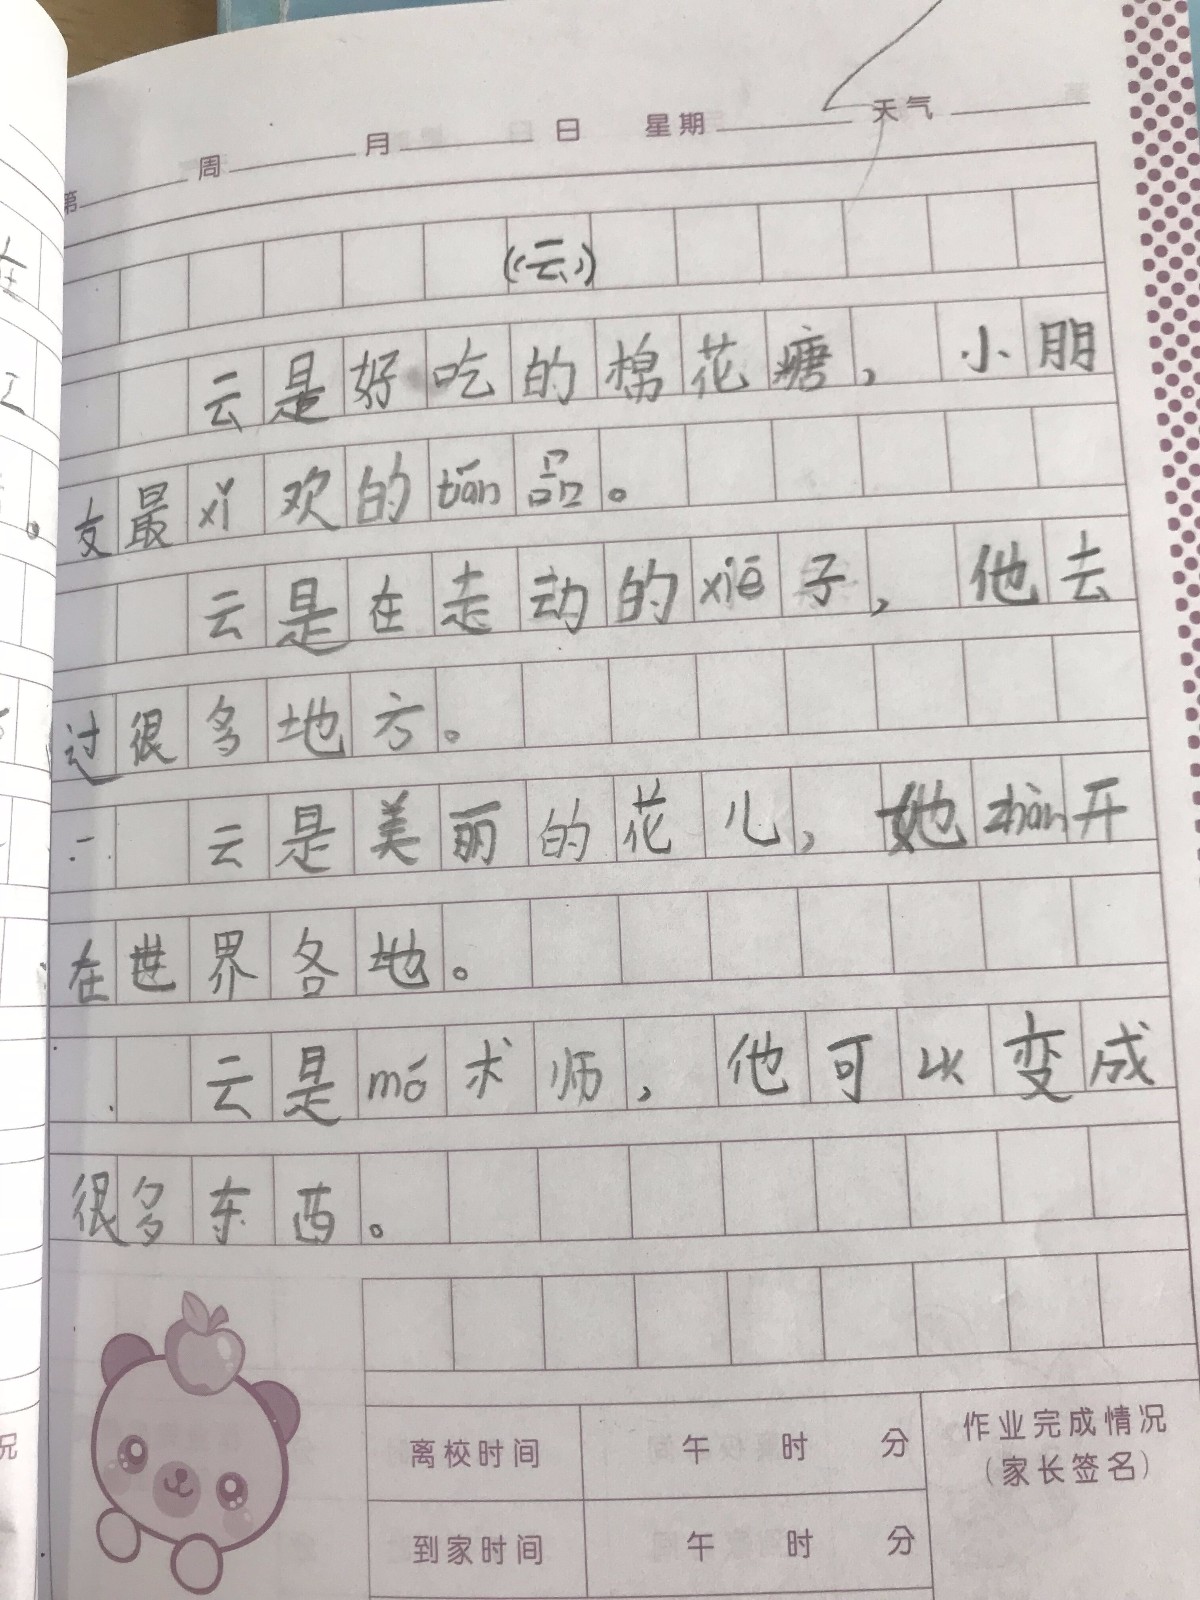 第 周 月 日 星期 天气
(云)
云是好吃的棉花糖，小朋
友最xǐ欢的tián品。
云是在走动的xié子，他去
过很多地方。
云是美丽的花儿，她zhǎn开
在世界各地。
云是mó术师，他可以变成
很多东西。
离校时间 午 时 分
到家时间 午 时 分
作业完成情况
(家长签名)